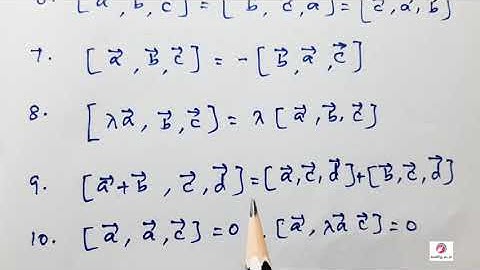 6. [a⃗, b⃗, c⃗] = [b⃗, c⃗, a⃗] = [c⃗, a⃗, b⃗]
7. [a⃗, b⃗, c⃗] = -[b⃗, a⃗, c⃗]
8. [λa⃗, b⃗, c⃗] = λ[a⃗, b⃗, c⃗]
9. [a⃗+b⃗, c⃗, d⃗] = [a⃗, c⃗, d⃗]+[b⃗, c⃗, d⃗]
10. [a⃗, a⃗, c⃗] = 0 [a⃗, λa⃗ c⃗] = 0